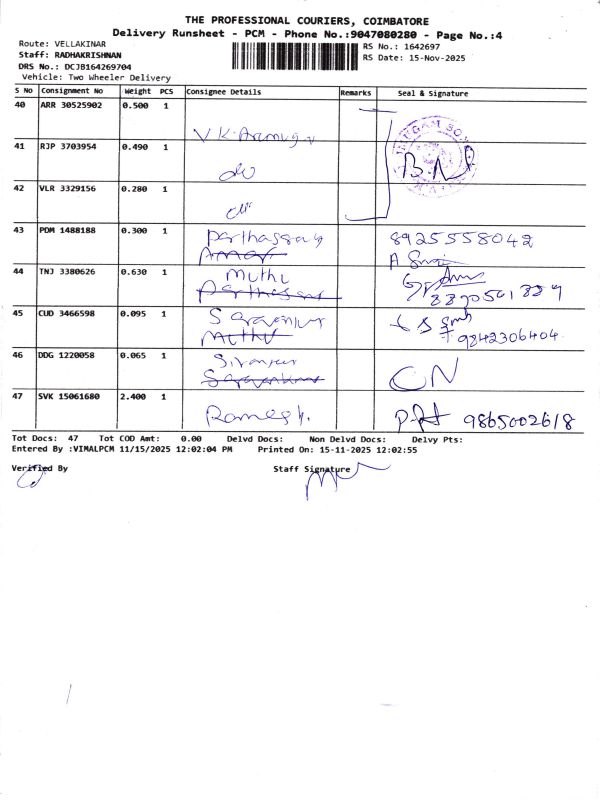 THE PROFESSIONAL COURIERS, COIMBATORE
Delivery Runsheet - PCM - Phone No.:9047080280 - Page No.:4
Route: VELLAKINAR
RS No.: 1642697
Staff: RADHAKRISHNAN
RS Date: 15-Nov-2025
DRS No.: DCJB164269704
Vehicle: Two Wheeler Delivery
S No Consignment No Weight PCS Consignee Details Remarks Seal & Signature
40 ARR 30525902 0.500 1
V K
41 RJP 3703954 0.490 1
do
42 VLR 3329156 0.280 1
do
43 PDM 1488188 0.300 1
8925558042
44 TNJ 3380626 0.630 1 Muthu
45 CUD 3466598 0.095 1 S
Muthu 9842306404
46 DDG 1220058 0.065 1
47 SVK 15061680 2.400 1 Ramesh. 9865002618
Tot Docs: 47 Tot COD Amt: 0.00 Delvd Docs: Non Delvd Docs: Delvy Pts:
Entered By :VIMALPCM 11/15/2025 12:02:04 PM Printed On: 15-11-2025 12:02:55
Verified By Staff Signature